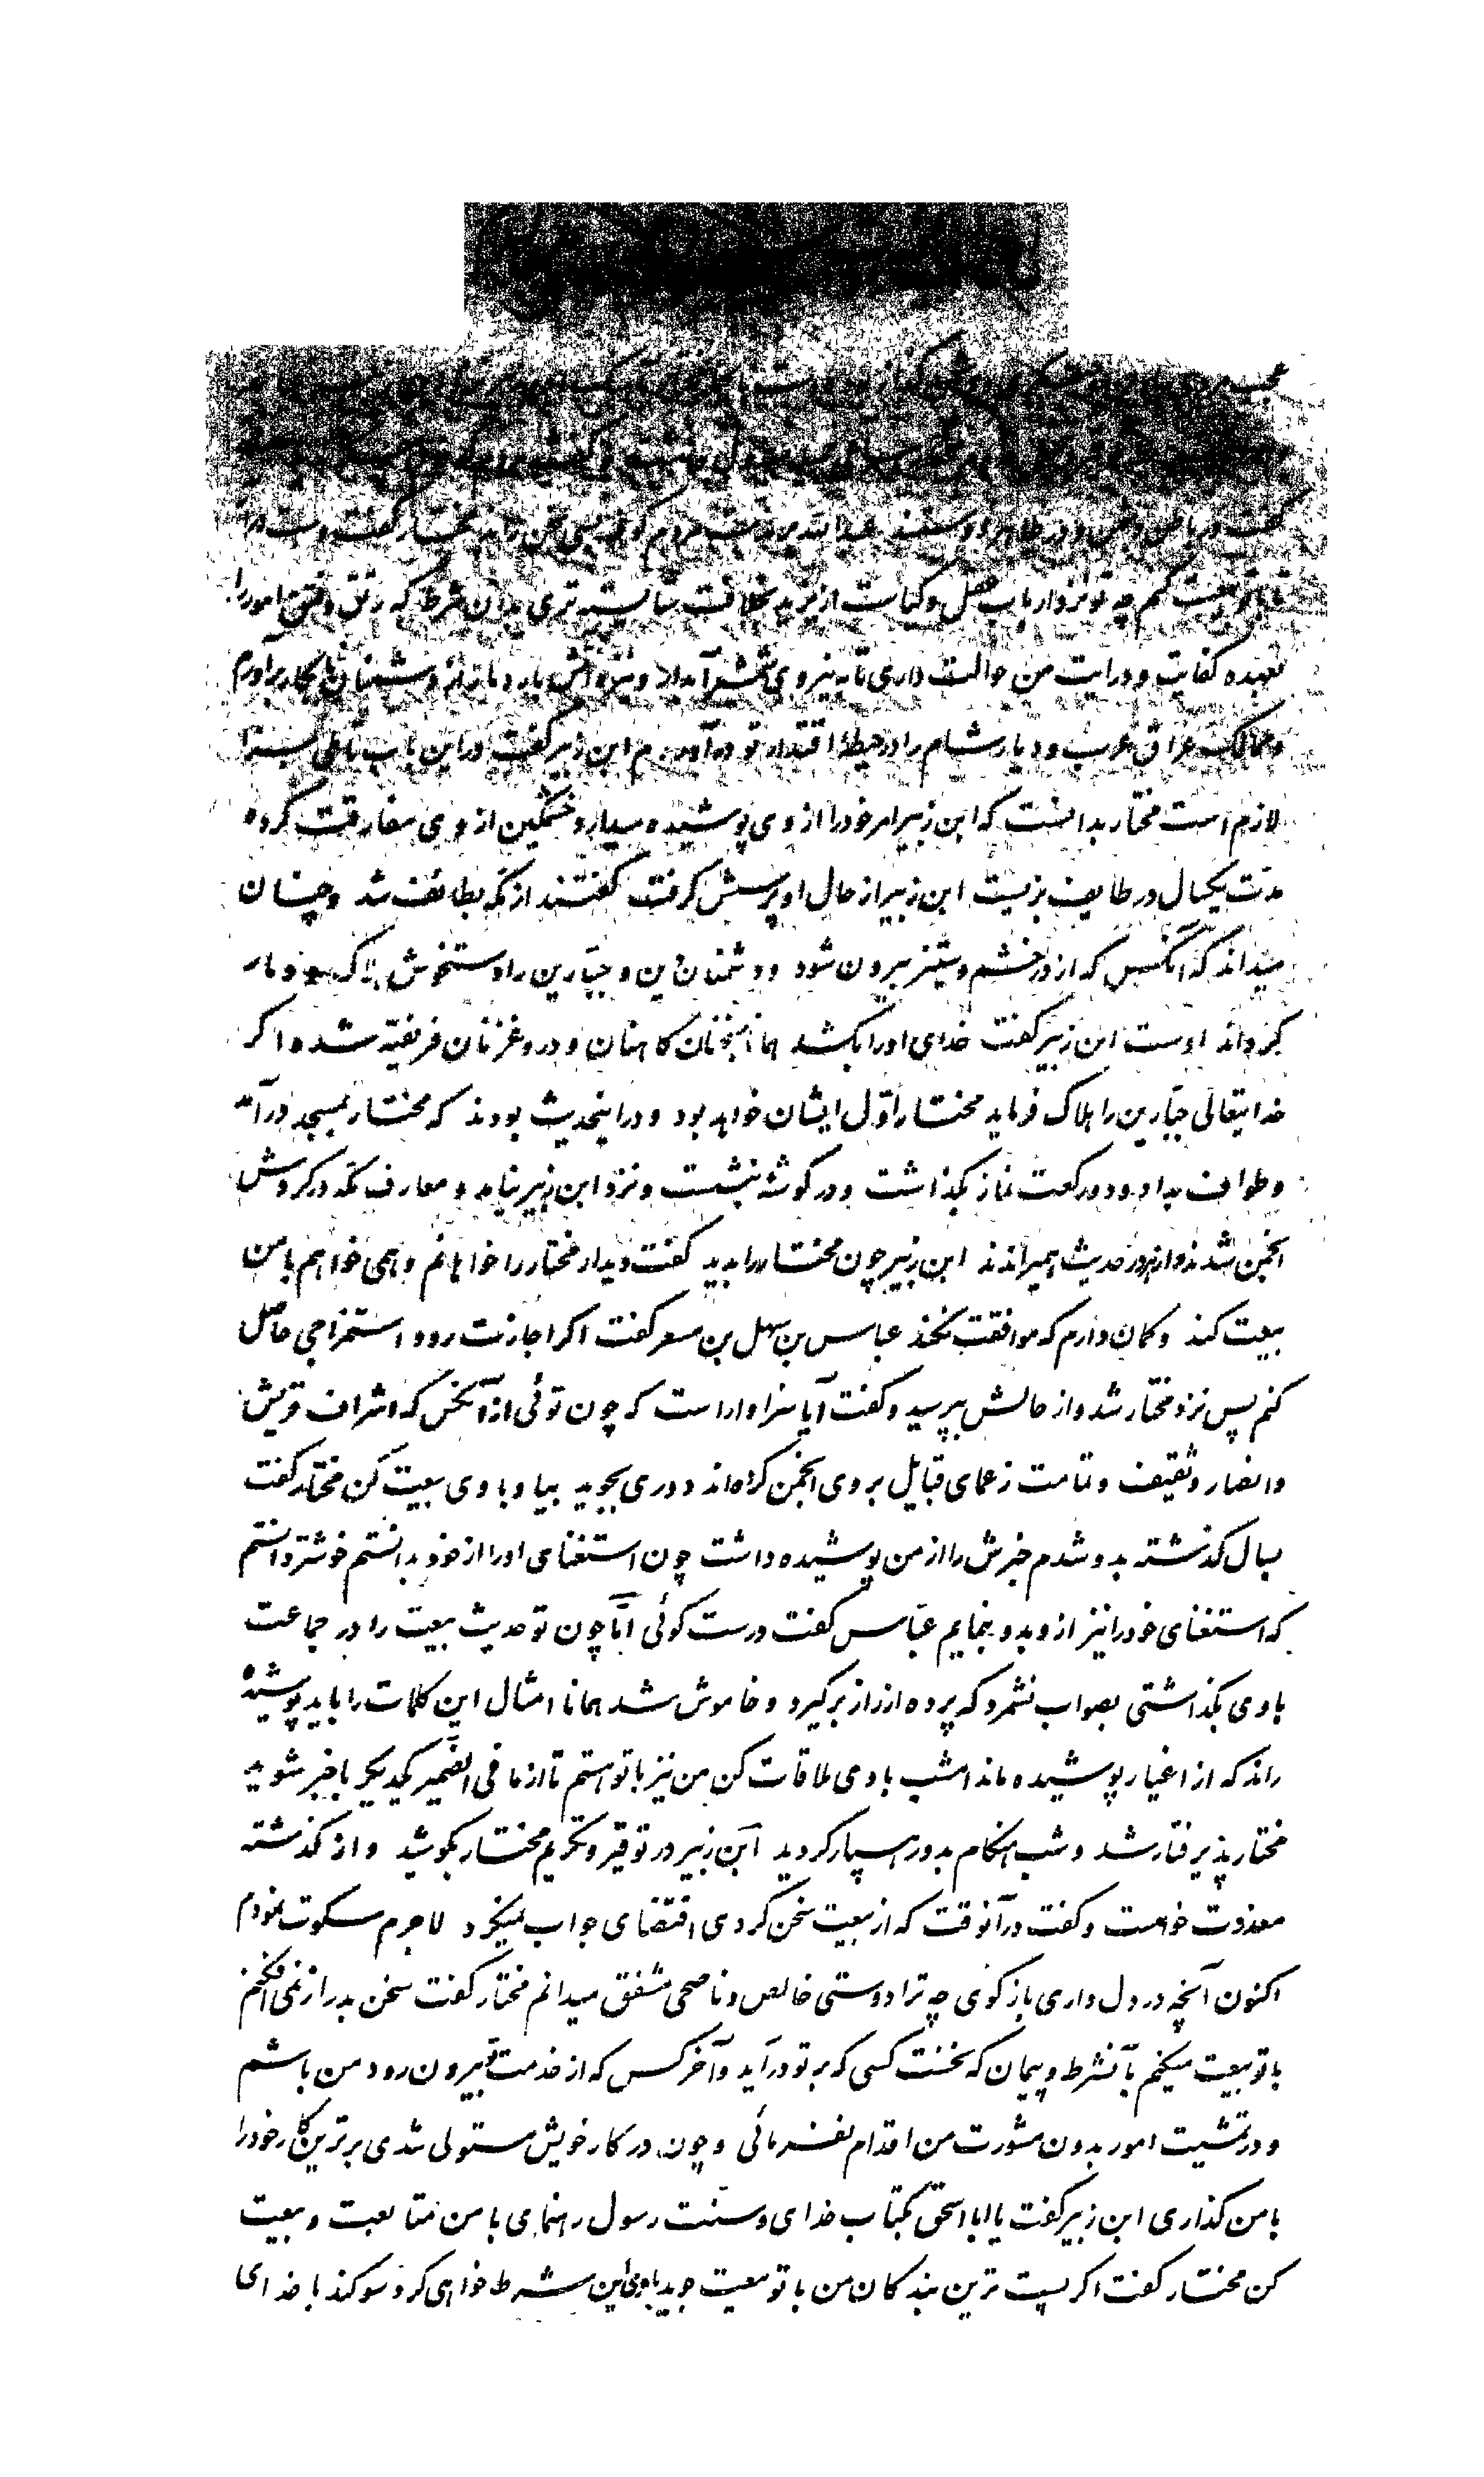 تا با تو بیعت کنم چه تو نزد ارباب عقل و کیاست از یزید بخلافت شایسته تری بدان شرط که رتق و فتق امور را
بعهده کفایت و درایت من حوالت داری تا به نیروی شمشیر آبدار و نیزه آتش بار دمار از دشمنان نابکار برآورم
و ممالک عراق عرب و دیار شام را در حیطهٔ اقتدار تو درآورم ابن زبیر گفت در این باب تأملی بسزا
لازم است مختار بدانست که ابن زبیر امر خود را از وی پوشیده میدارد خشمگین از وی مفارقت کرده
مدّت یکسال در طایف بزیست ابن زبیر از حال او پرسش گرفت گفتند از مکّه بطائف شد و چنان
میداند که آنکس که از در خشم و ستیز بیرون شود و دشمنان دین و جبّارین را دستخوش هلاک و دمار
گرداند اوست ابن زبیر گفت خدای او را بکشد همانا بسخنان کاهنان و دروغزنان فریفته شده اگر
خدایتعالی جبّارین را هلاک فرماید مختار اوّل ایشان خواهد بود و در اینحدیث بودند که مختار بمسجد درآمد
و طواف بداد و دو رکعت نماز بگذاشت و در گوشه بنشست و نزد ابن زبیر نیامد و معارف مکّه در گردش
انجمن شدند و از هر در حدیث همیراندند ابن زبیر چون مختار را بدید گفت دیدار مختار را خواهانم و همی خواهم با من
بیعت کند و گمان دارم که موافقت نکند عباس بن سهل بن سعد گفت اگر اجازت رود استمزاجی حاصل
کنم پس نزد مختار شد و از حالش بپرسید و گفت آیا سزاوار است که چون توئی از آنکس که اشراف قریش
و انصار و ثقیف و تمامت زعمای قبایل بر وی انجمن کرده‌اند دوری بجوید بیا و با وی بیعت کن مختار گفت
بسال گذشته بدو شدم خبرش را از من پوشیده داشت چون استغنای او را از خود بدانستم خوشتر دانستم
که استغنای خود را نیز از وی بدو بنمایم عبّاس گفت درست گوئی امّا چون تو حدیث بیعت را در جماعت
با وی بگذاشتی بصواب نشمرد که پرده از راز برگیرد و خاموش شد همانا امثال این کلمات را باید پوشیده
راند که از اغیار پوشیده ماند امشب با وی ملاقات کن من نیز با تو هستم تا از ما فی الضّمیر یکدیگر باخبر شوید
مختار پذیرفتار شد و شب هنگام بدو رهسپار گردید ابن زبیر در توقیر و تکریم مختار بکوشید و از گذشته
معذرت خواست و گفت در آنوقت که از بیعت سخن کردی اقتضای جواب نمیکرد لاجرم سکوت نمودم
اکنون آنچه در دل داری بازگوی چه ترا دوستی خالص و ناصحی مشفق میدانم مختار گفت سخن بدراز نمی افکنم
با تو بیعت میکنم بآنشرط و پیمان که نخست کسی که بر تو درآید و آخر کس که از خدمت بیرون رود من باشم
و در تمشیت امور بدون مشورت من اقدام نفرمائی و چون در کار خویش مستولی شدی برترین کار خود را
با من گذاری ابن زبیر گفت یا ابا اسحق بکتاب خدای و سنت رسول رهنمای با من متابعت و بیعت
کن مختار گفت اگر پست ترین بندگان من با تو بیعت جوید با وی این شرط خواهی کرد سوگند با خدای